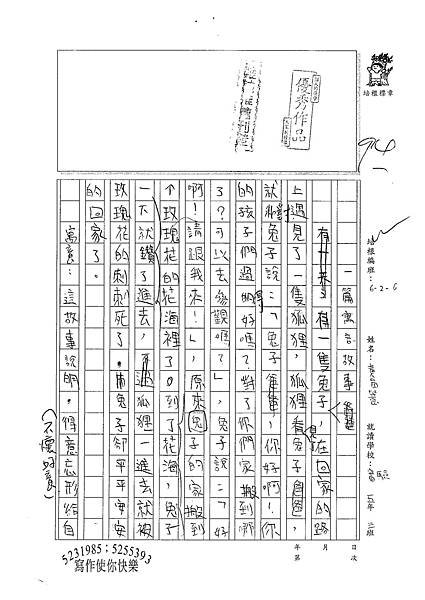 培根標章
優秀作品
94
培根編班：6-2-6
姓名：
就讀學校：
五年三班
一篇寓言故事
有一天，有一隻兔子，在回家的路
上遇見了一隻狐狸，狐狸看兔子
就和兔子說：「兔子爸爸，你好啊！你
的孩子們過得好嗎？對了你們家搬到哪
了？可以去參觀嗎？」，兔子說：「好
啊！請跟我來！」，原來兔子的家搬到
玫瑰花的花海裡了。到了花海，兔子
一下就鑽了進去，不過狐狸一進去就被
玫瑰花的刺刺死了。而兔子卻平平安安
的回家了。
寓意：這故事說明。得意忘形給自
（不懂得寓意）
年 月 日
第 次
5231985；5255393
寫作使你快樂